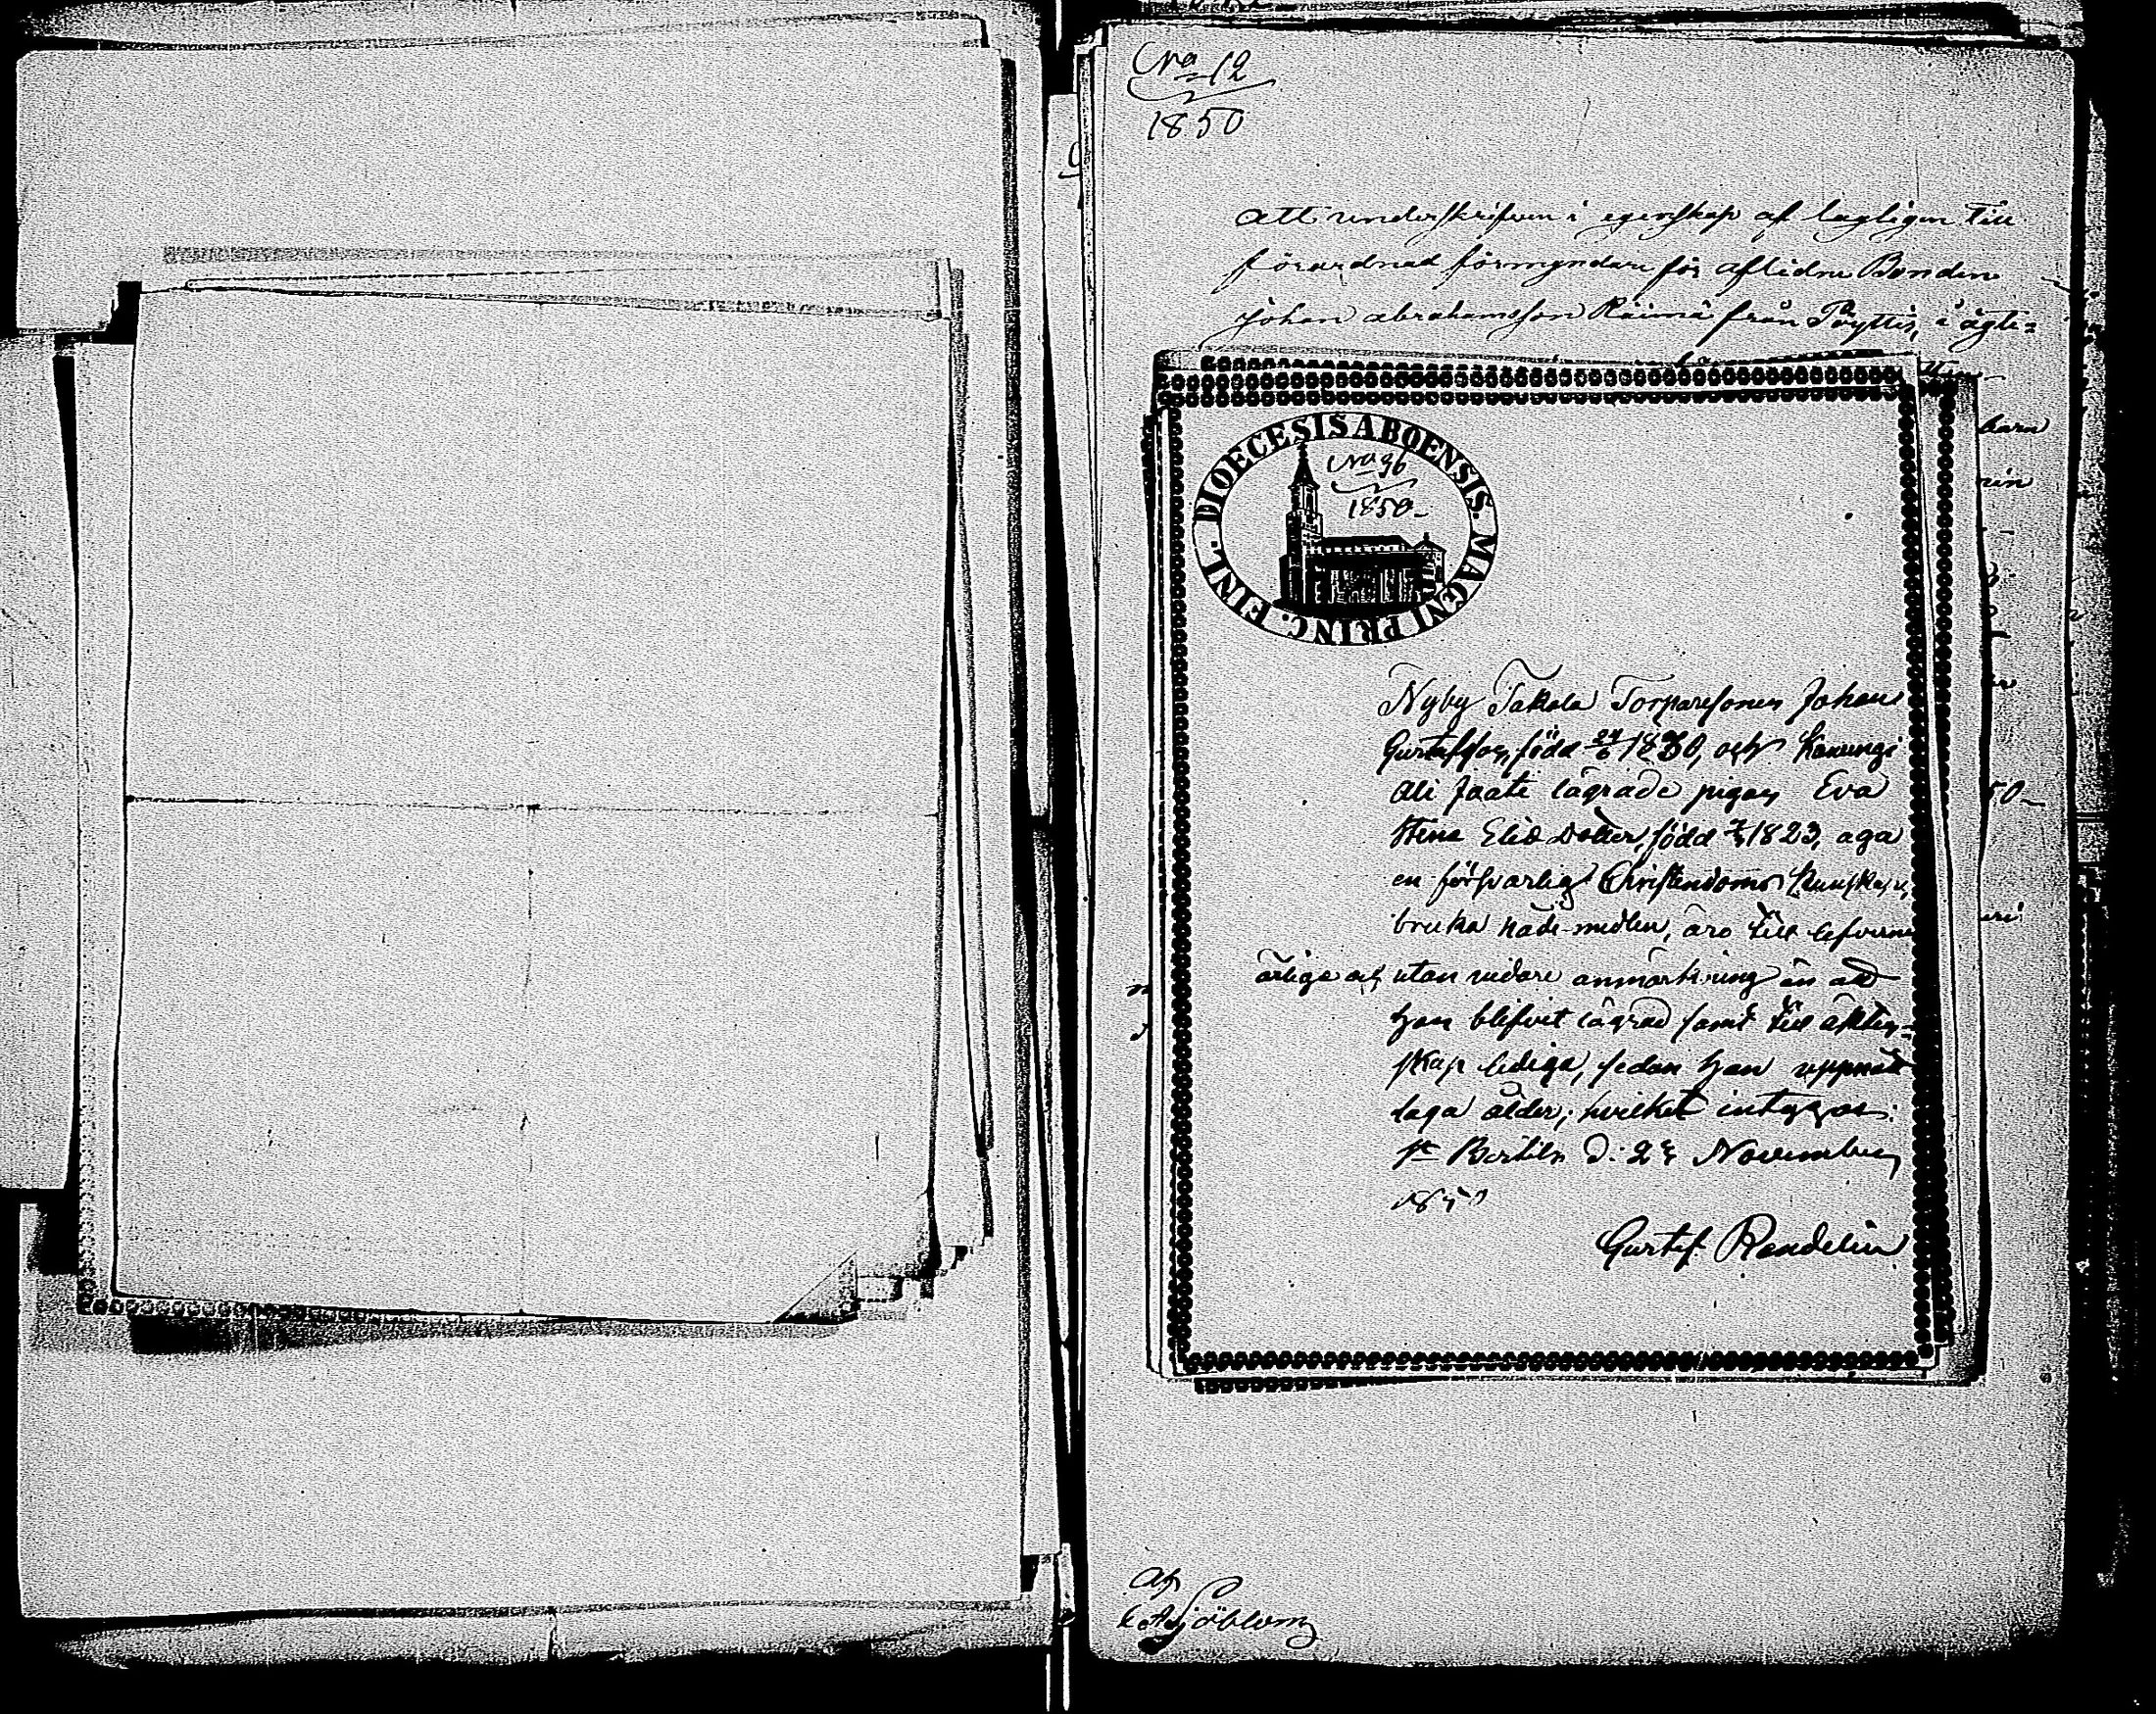 N:o 12
1850
att underskrifven i egenskap af lagligen till
förordnad förmyndare för aflidne Bonden
Johan Abrahamsson Räimä från Pöyttis, i ägte=
barn
DIOECESIS ABOENSIS. MAGNI PRINC. FINL.
N:o 36
1850
Nyby Takala Torparesonen Johan
Gustafsson, född 24/6 1830, och Kanungi
Ali Jaati lägrade pigan Eva
Stina Elias Dotter, född 1823, äga
en försvarlig Christendoms kunskap,
bruka nåde-medlen, äro till lefverne
ärliga och utan vidare anmärkning än att
hon blifvit lägrad samt till äkten-
skap lediga, sedan han uppnått
laga ålder; hvilket intygas.
St Bertils d. 24 November
1850
Gustaf Randelin
50
Af
Sjöblom